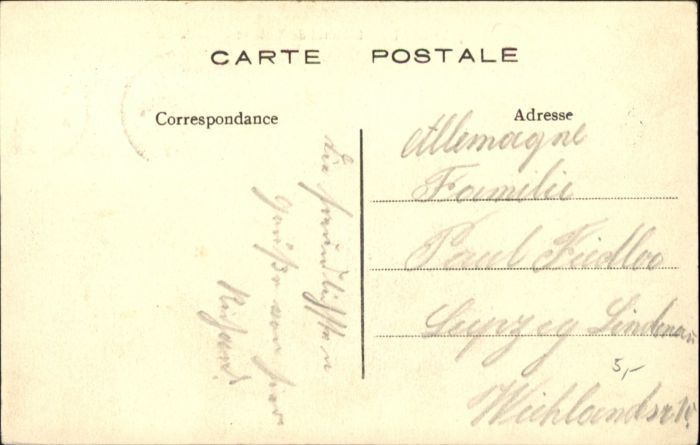 CARTE POSTALE
Correspondance
Adresse
die freundlichsten
Grüße von hier
Richard.
Allemagne
Familie
Paul Fiedler
Leipzig Lindenau
5,-